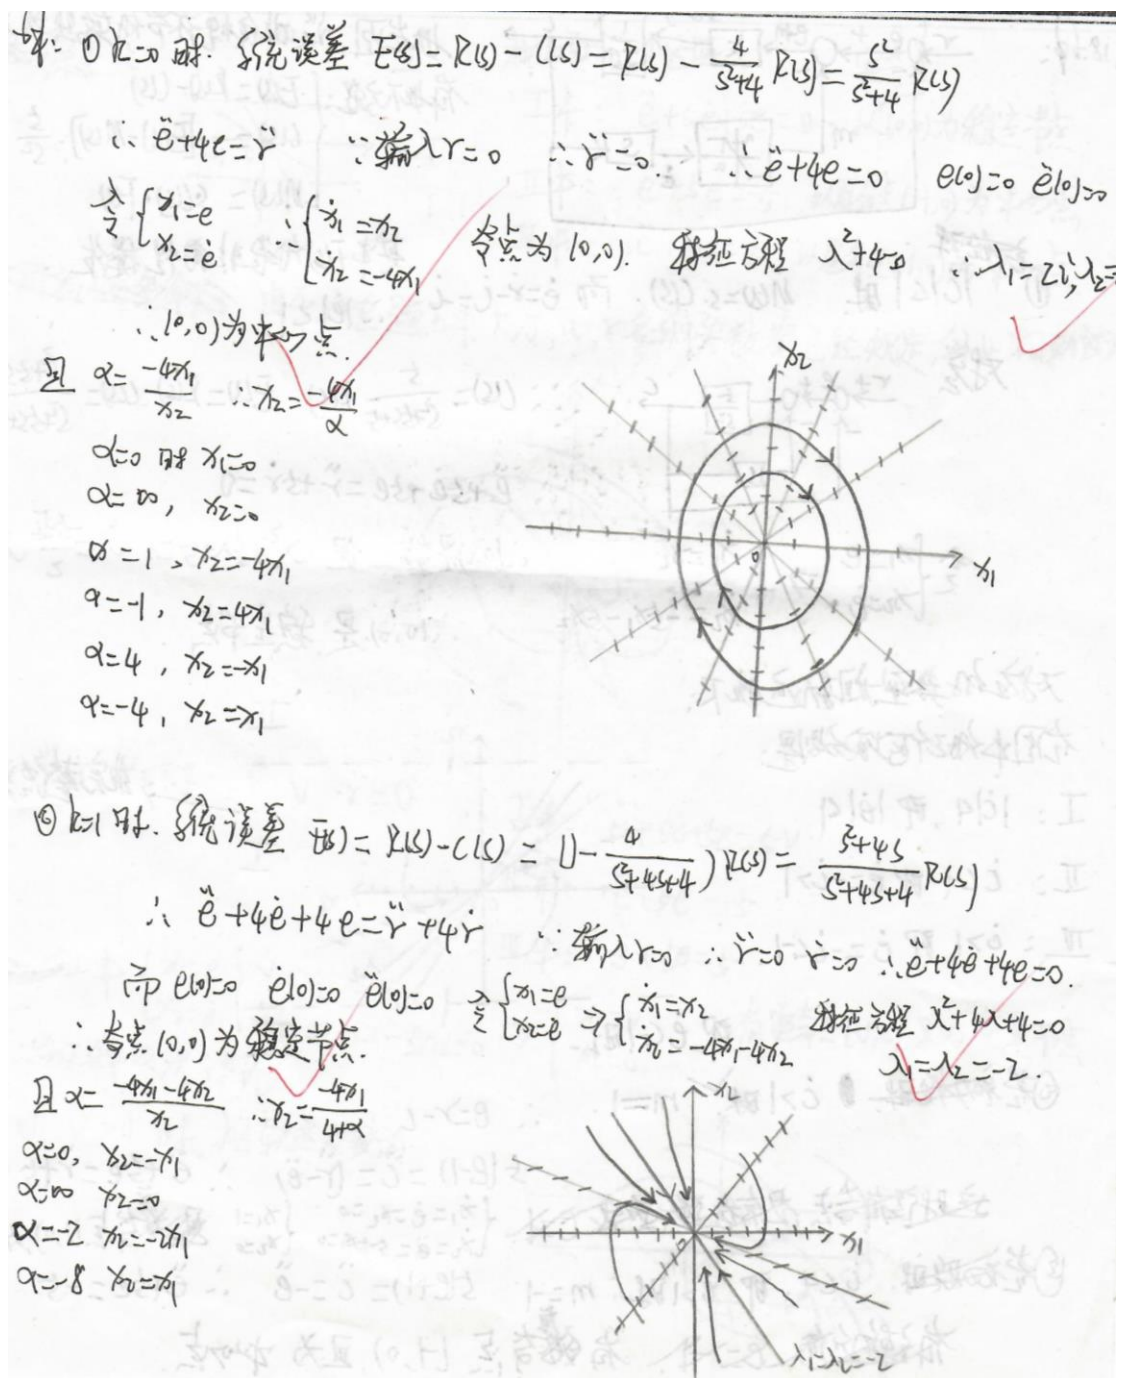 解: ① k=0 时. 系统误差 E(s)=R(s)-C(s)=R(s)-\frac{4}{s²+4}R(s)=\frac{s²}{s²+4}R(s)
∴ ë+4e=r̈ ∵输入r=0 ∴r̈=0. ∴ë+4e=0 e(0)=0 ė(0)=0
令{x₁=e x₂=ė ∴{ẋ₁=x₂ ẋ₂=-4x₁ 奇点为(0,0). 特征方程 λ²+4=0 ∴λ₁=2i, λ₂=
∴(0,0)为中心点.
且 α=\frac{-4x₁}{x₂} ∴x₂=\frac{-4x₁}{α}
α=0 时 x₁=0
α=∞, x₂=0
α=1, x₂=-4x₁
α=-1, x₂=4x₁
α=4, x₂=-x₁
α=-4, x₂=x₁
x₂
0
x₁
② k=1 时. 系统误差 E(s)=R(s)-C(s)=(1-\frac{4}{s²+4s+4})R(s)=\frac{s²+4s}{s²+4s+4}R(s)
∴ ë+4ė+4e=r̈+4ṙ ∵输入r=0 ∴r̈=0 ṙ=0 ∴ë+4ė+4e=0.
而 e(0)=0 ė(0)=0 ë(0)=0 令{x₁=e x₂=ė ⇒{ẋ₁=x₂ ẋ₂=-4x₁-4x₂ 特征方程 λ²+4λ+4=0
∴奇点(0,0)为稳定节点. λ₁=λ₂=-2.
且α=\frac{-4x₁-4x₂}{x₂} ∴x₂=\frac{-4x₁}{4+α}
α=0, x₂=-x₁
α=∞ x₂=0
α=-2 x₂=-2x₁
α=-8 x₂=x₁
x₂
0
x₁
λ₁=λ₂=-2